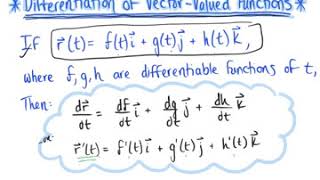 *Differentiation of Vector-Valued Functions*
If r⃗(t) = f(t)i⃗ + g(t)j⃗ + h(t)k⃗,
where f, g, h are differentiable functions of t,
Then: dr⃗/dt = df/dt i⃗ + dg/dt j⃗ + dh/dt k⃗
or: r⃗'(t) = f'(t)i⃗ + g'(t)j⃗ + h'(t)k⃗